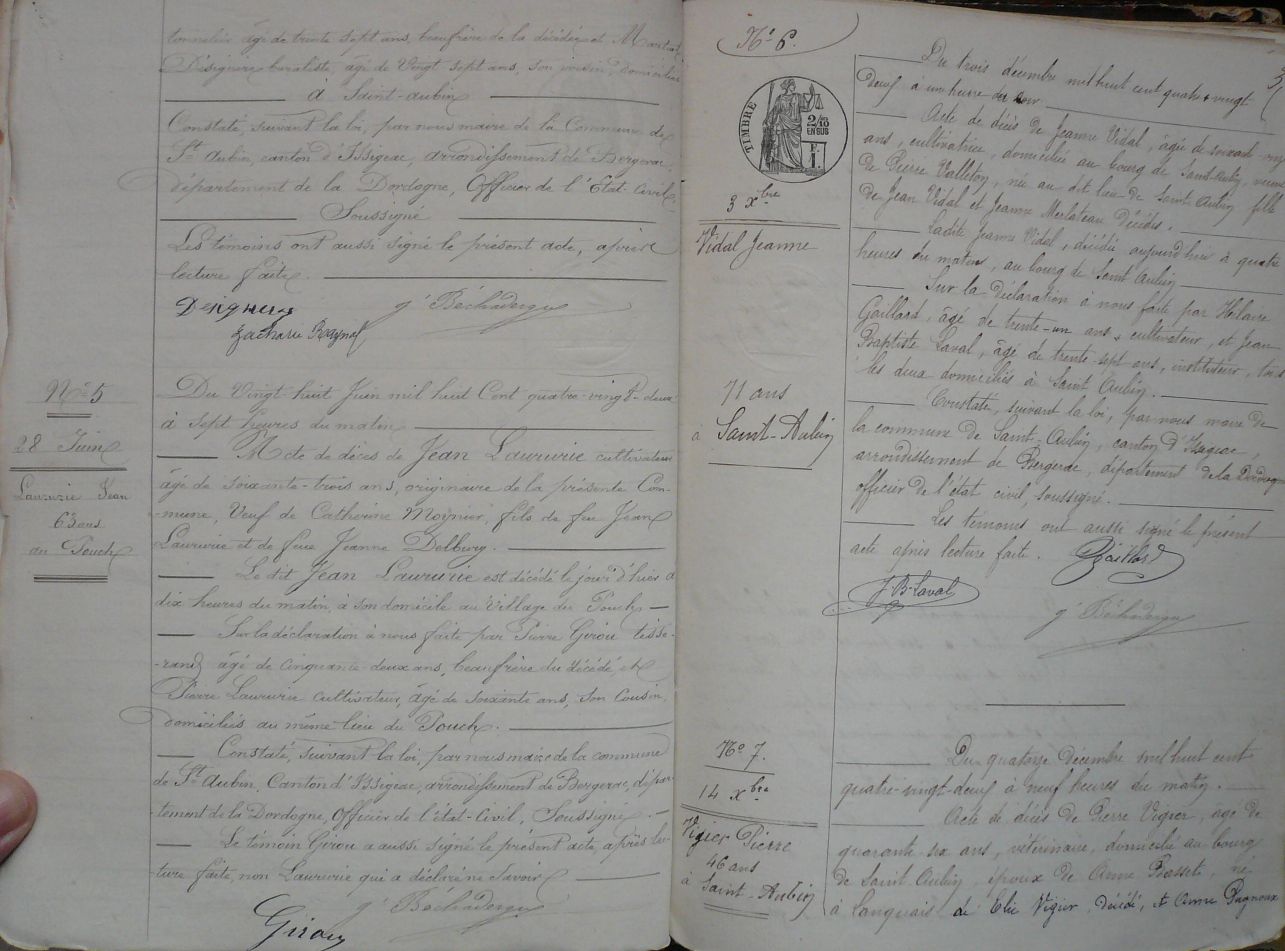 tonnelier âgé de trente sept ans, beaufrère de la décédée et Martial
Désignère buraliste, agé de Vingt sept ans, son voisin, domiciliés
à Saint-aubin
Constaté, suivant la loi, par nous maire de la Commune de
St Aubin, canton d'Issigeac, arrondissement de Bergerac,
département de la Dordogne, Officier de l'Etat-Civil
Soussigné
Les témoins ont aussi signé le présent acte, après
lecture faite.
g' Béchadergue
Zacharie
No 5
28 Juin
Laururie Jean
63 ans
au Touch
Du Vingt-huit Juin mil huit Cent quatre-vingt-deux
à Sept heures du matin
Acte de décès de Jean Laururie cultivateur
âgé de soixante-trois ans, originaire de la présente Com-
-mune, Veuf de Catherine Moynier, fils de feu Jean
Laururie et de feue Jeanne Delbury.
Le dit Jean Laururie est décédé le jour d'hier à
dix heures du matin, à son domicile au Village du Touch
Sur la déclaration à nous faite par Pierre Girou tisse-
-rand, âgé de cinquante-deux ans, beaufrère du décédé, et
Pierre Laururie cultivateur, âgé de soixante ans, son Cousin,
domiciliés au même lieu du Touch.
Constaté, suivant la loi, par nous maire de la commune
de St Aubin, Canton d'Issigeac, arrondissement de Bergerac, dépar-
-tement de la Dordogne, Officier de l'état-Civil, Soussigné.
Le témoin Girou a aussi signé le présent acte, après lec-
-ture faite, non Laururie qui a déclaré ne savoir
g' Béchadergue
Girou
No 6.
TIMBRE
2/10
EN SUS
F.
1.
3 xbre
Vidal Jeanne
71 ans
à Saint-Aubin
Du trois décembre mil huit cent quatre-vingt
deux à une heure du soir
Acte de décès de Jeanne Vidal, âgée de soixante-onze
ans, cultivatrice, domiciliée au bourg de Saint-Aubin, veuve
de Pierre Valleton, née au dit lieu de Saint-Aubin, fille
de Jean Vidal et Jeanne Merlateau décédés.
Ladite Jeanne Vidal, décédée aujourd'hui à quatre
heures du matin, au bourg de Saint Aubin
Sur la déclaration à nous faite par Hilaire
Gaillard, âgé de trente-un ans, cultivateur, et Jean
Baptiste Laval, âgé de trente-sept ans, instituteur, tous
les deux domiciliés à Saint Aubin.
Constaté, suivant la loi, par nous maire de
la commune de Saint-Aubin, canton d'Issigeac,
arrondissement de Bergerac, département de la Dordogne
officier de l'état civil, soussigné.
Les témoins ont aussi signé le présent
acte après lecture faite. Gaillard
J-B-Laval
g' Béchadergue
No 7.
14 xbre
Vigier Pierre
46 ans
à Saint-Aubin
Du quatorze décembre mil huit cent
quatre-vingt-deux à neuf heures du matin.
Acte de décès de Pierre Vigier, âgé de
quarante-six ans, vétérinaire, domicilié au bourg
de Saint-Aubin, époux de Anne Basset, né
à Lanquais de Elie Vigier, décédé, et Anne Pugnoux